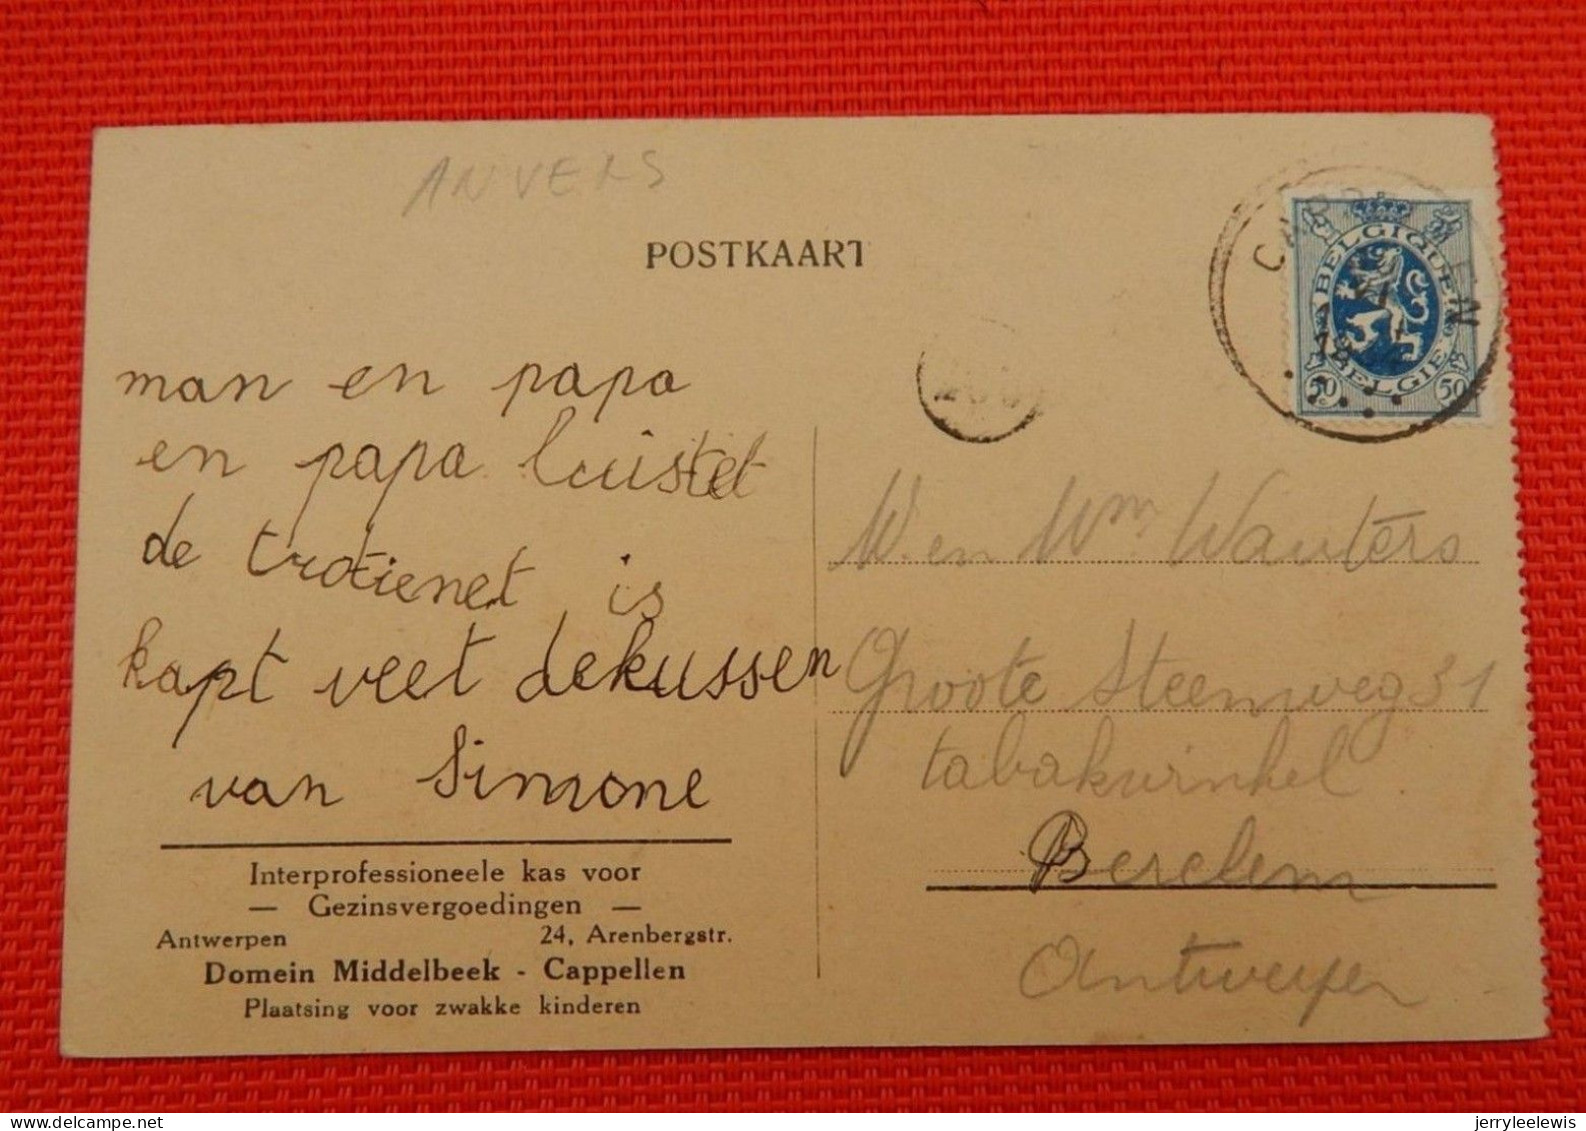 ANVERS
POSTKAART
BELGIQUE
BELGIE
50 50
man en papa
en papa luistet
de trotienet is
kapt veet dekussen
van Simone
W. en Wm Wauters
Groote Steenweg 31
tabakwinkel
Berclem
Antwerpen
Interprofessioneele kas voor
— Gezinsvergoedingen —
Antwerpen 24, Arenbergstr.
Domein Middelbeek - Cappellen
Plaatsing voor zwakke kinderen
jerryleelewis